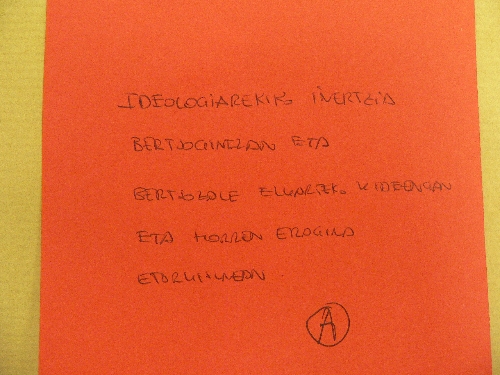 IDEOLOGIAREKIKO INERTZIA
BERTSOGINTZAN ETA
BERTSOZALE ELKARTEKO KIDEENGAN
ETA HORREN ERAGINA
ETORKIZUNEAN.
A